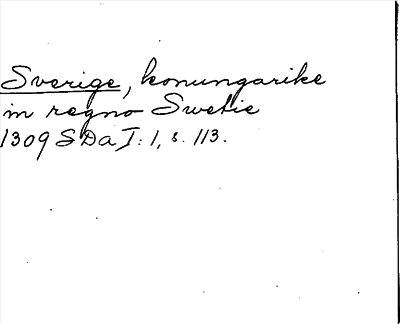 Sverige, konungarike
in regno Swetie
1309 SDa I: 1, s. 113.